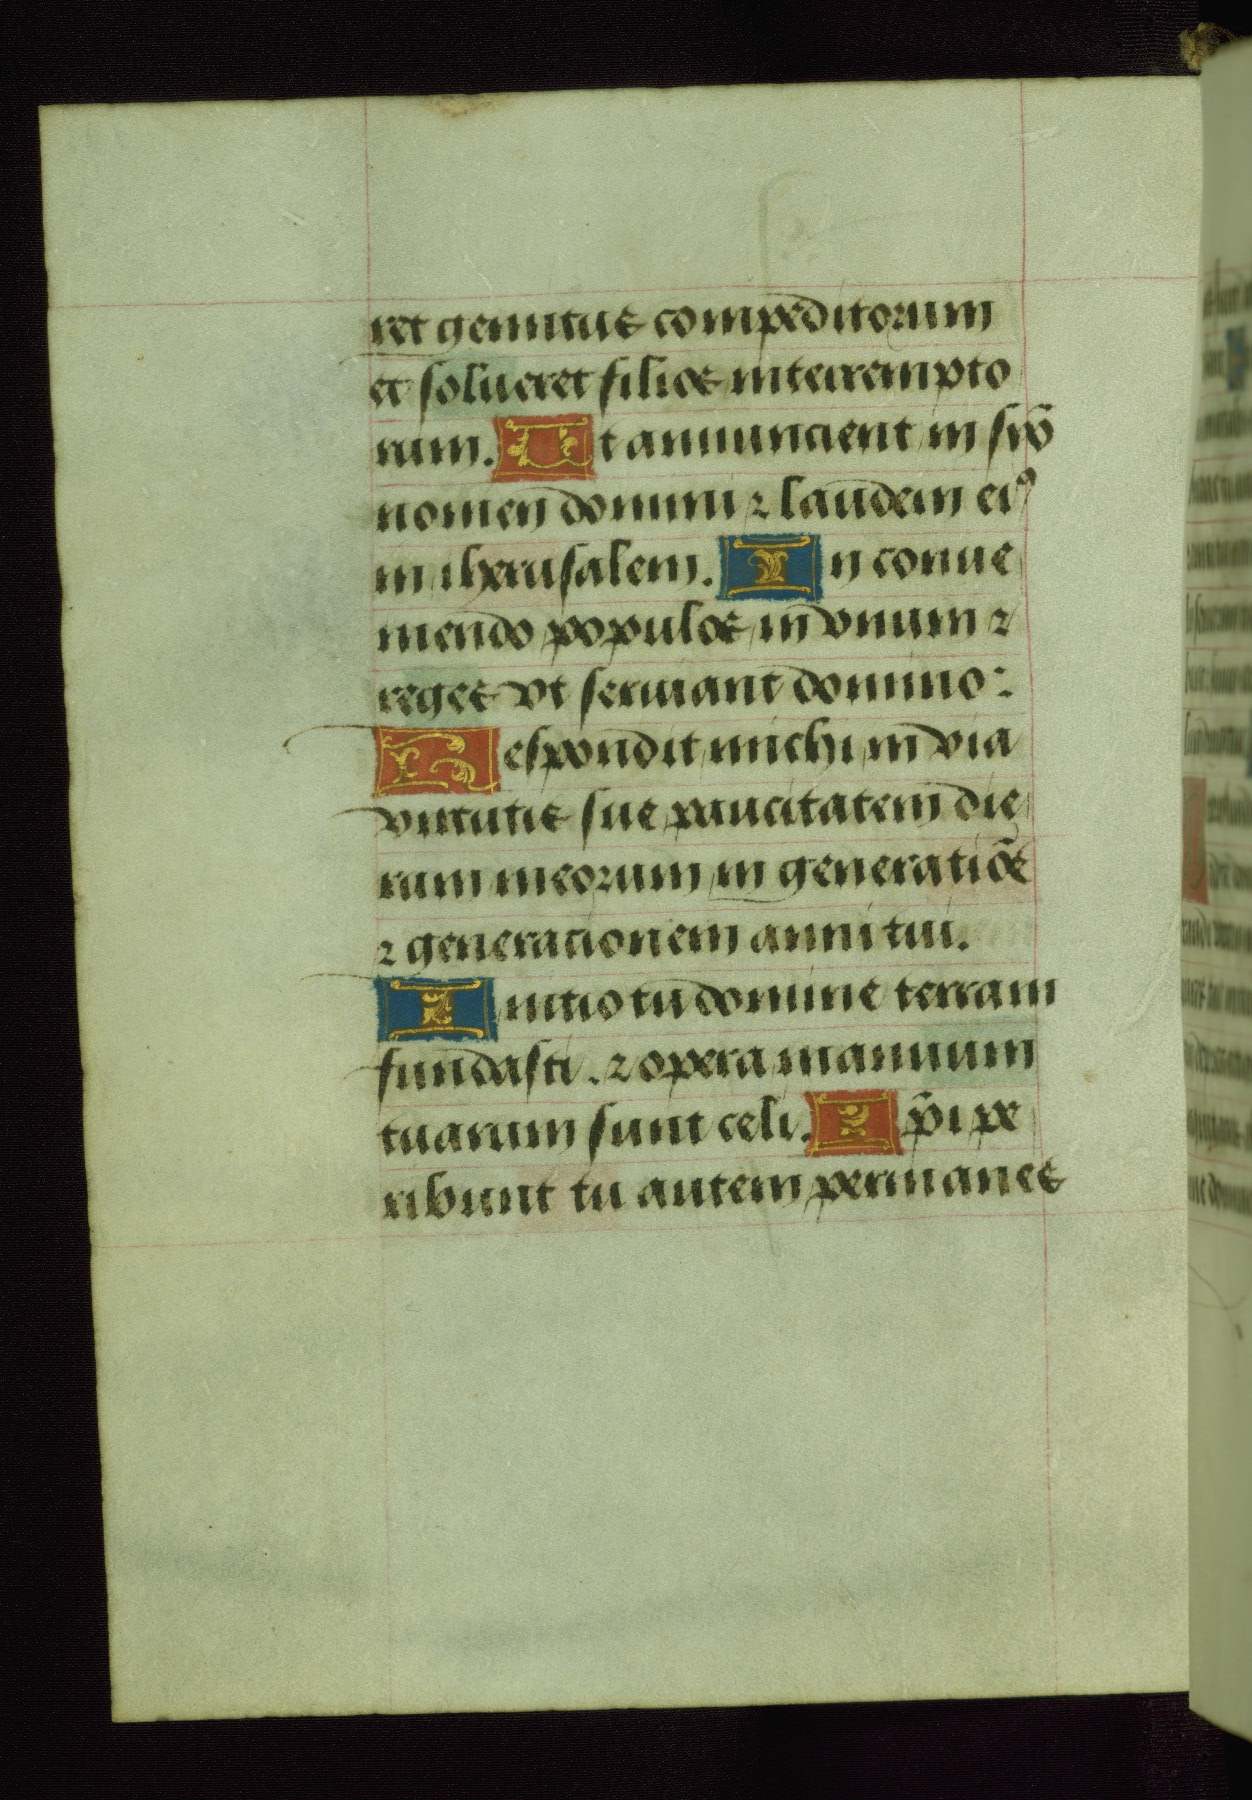 ret gemitus compeditorum
et solueret filios interrempto
rum. Ut annuncient in syō
nomen domini ⁊ laudem eiꝰ
in iherusalem. In conue
niendo populos in vnum ⁊
reges vt seruiant domino:
Respondit michi in via
virtutis sue paucitatem die
rum meorum in generatiōe
⁊ generationem anni tui.
Initio tu domine terram
fundasti. ⁊ opera manuum
tuarum sunt celi. Ip̄i pe
ribunt tu autem permanes